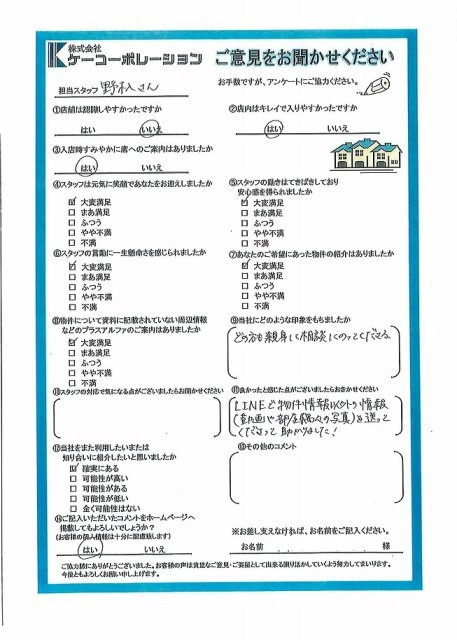 株式会社
ケーコーポレーション
ご意見をお聞かせください
お手数ですが、アンケートにご協力ください。
担当スタッフ 野村さん
①店舗は認識しやすかったですか
はい いいえ
②店内はキレイで入りやすかったですか
はい いいえ
③入店時すみやかに席へのご案内はありましたか
はい いいえ
④スタッフは元気に笑顔であなたをお迎えしましたか
大変満足
まあ満足
ふつう
やや不満
不満
⑤スタッフの動きはてきぱきしており
安心感を得られましたか
大変満足
まあ満足
ふつう
やや不満
不満
⑥スタッフの言動に一生懸命さを感じられましたか
大変満足
まあ満足
ふつう
やや不満
不満
⑦あなたのご希望にあった物件の紹介はありましたか
大変満足
まあ満足
ふつう
やや不満
不満
⑧物件について資料に記載されていない周辺情報
などのプラスアルファのご案内はありましたか
大変満足
まあ満足
ふつう
やや不満
不満
⑨当社にどのような印象をもちましたか
どの方も親身に相談にのってくださる
⑩スタッフの対応で気になる点がございましたらお聞かせください
⑪良かったと感じた点がございましたらおきかせください
LINEで物件情報以外の情報
(動画や部屋隅々の写真)を送って
くださって助かりました!
⑫当社をまた利用したいまたは
知り合いに紹介したいと思いましたか
確実にある
可能性が高い
可能性がある
可能性が低い
全く可能性はない
⑬その他のコメント
⑭ご記入いただいたコメントをホームページへ
掲載してもよろしいでしょうか?
(お客様の個人情報は十分に配慮致します)
はい いいえ
※お差し支えなければ、お名前をご記入ください。
お名前 様
ご協力誠にありがとうございました。お客様の声は貴重なご意見・ご要望として出来る限り活かしていくよう努力してまいります。
今後ともよろしくお願い申し上げます。